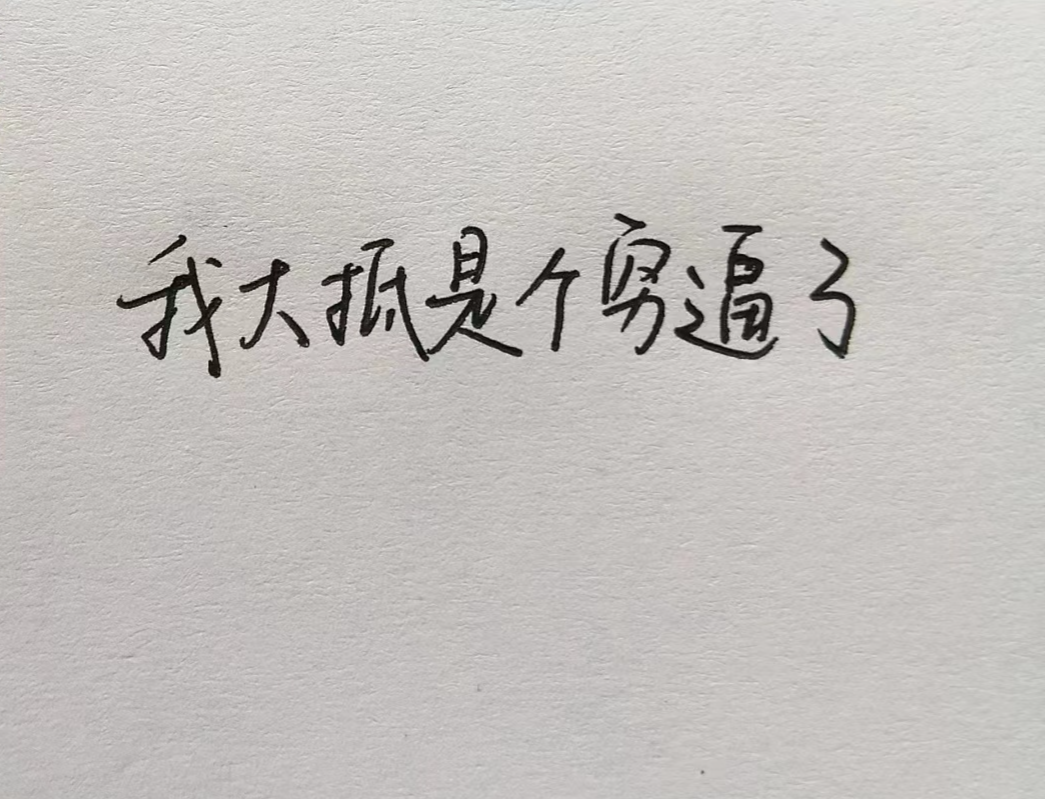 我大抵是个穷逼了